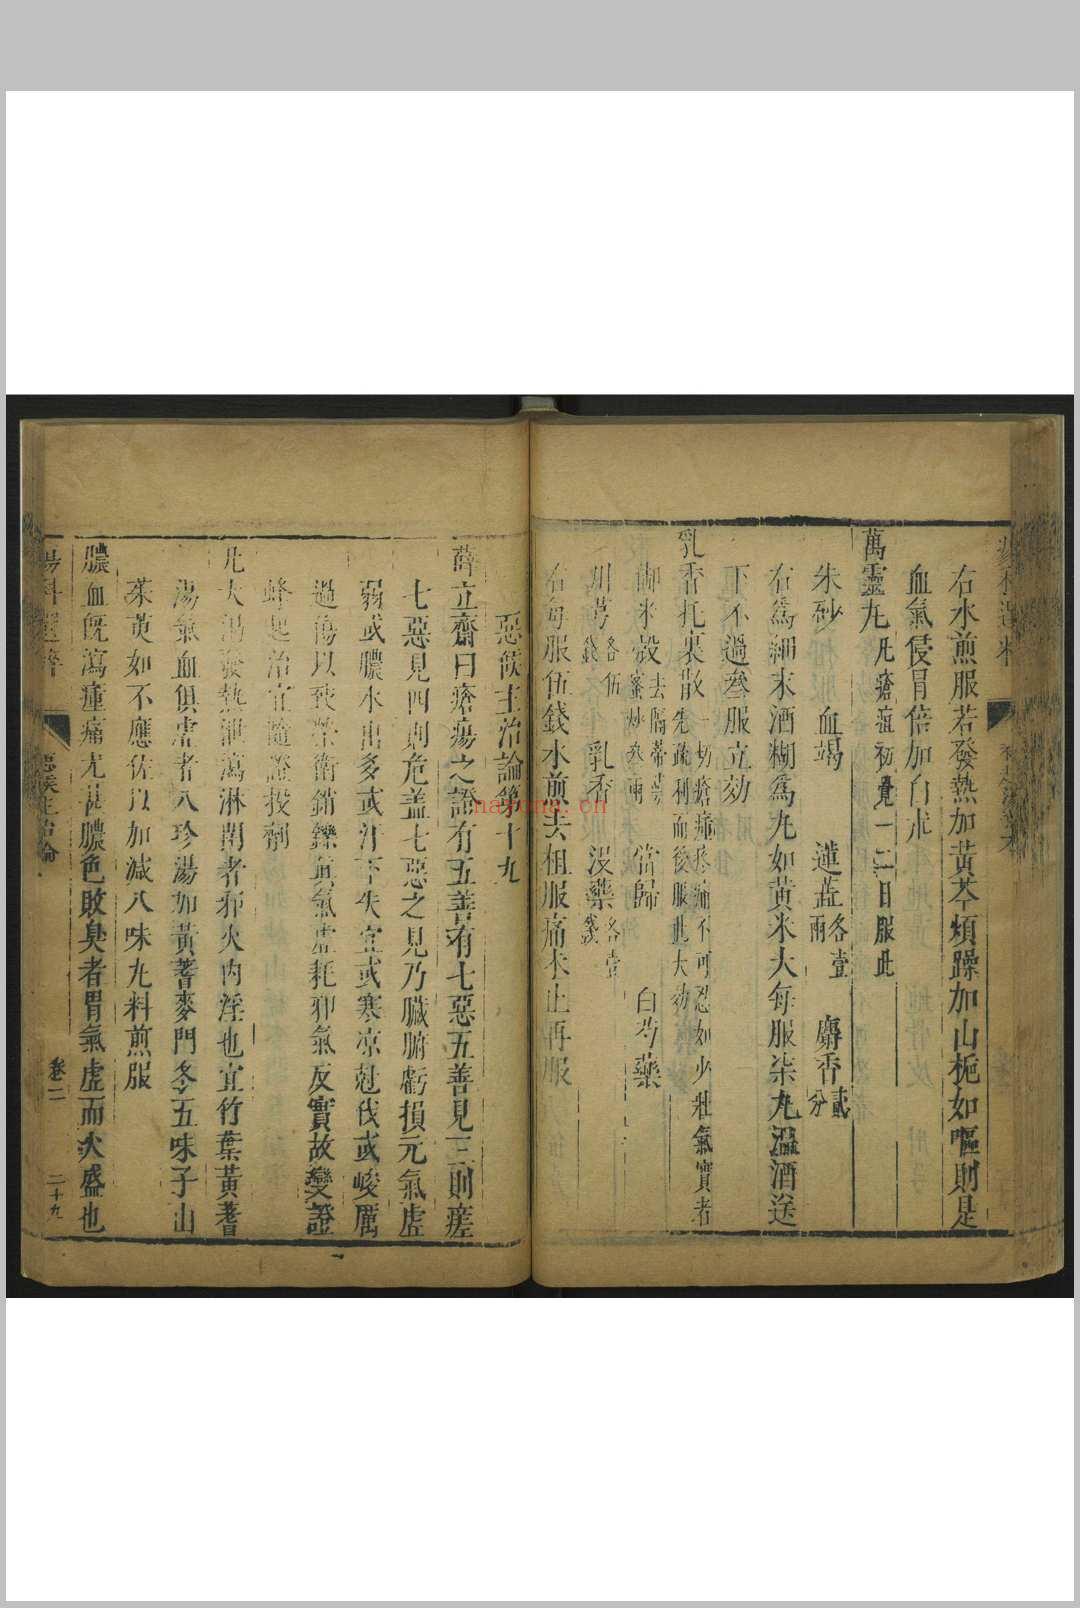 右水煎服若發熱加黃芩煩躁加山梔如嘔則是
血氣侵胃倍加白朮
萬靈丸 凡瘡疽初覺一二日服此
朱砂 血竭 蓮蕋各壹兩 麝香貳分
右爲細末酒糊爲丸如黃米大每服柒丸溫酒送
下不過叁服立効
乳香托裏散 一切瘡癤疼痛不可忍如少壯氣實者先疏利而後服此大効
御米殼去隔蒂蜜炒叁兩 當歸 白芍藥
川芎各伍錢 乳香 沒藥各壹錢
右每服伍錢水煎去柤服痛未止再服
惡候主治論第十九
薛立齋曰瘡瘍之證有五善有七惡五善見三則瘥
七惡見四則危蓋七惡之見乃臟腑虧損元氣虛
弱或膿水出多或汗下失宜或寒凉尅伐或峻厲
過傷以致榮衛銷鑠眞氣虛耗邪氣反實故變證
蜂起治宜隨證投劑
凡大渴發熱泄瀉淋閉者邪火內淫也宜竹葉黃蓍
湯氣血俱虛者八珍湯加黃蓍麥門冬五味子山
茱萸如不應佐以加減八味丸料煎服
膿血旣瀉腫痛尤甚膿色敗臭者胃氣虛而火盛也
瘍科選粹 惡候主治論 卷二 二十九
nayona.cn